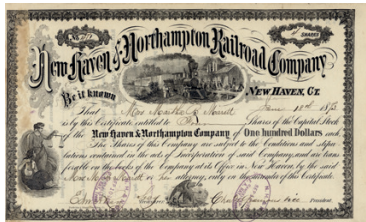 No
SHARES
New Haven & Northampton Railroad Company
NEW HAVEN, CT.
Be it known
That Mrs Martha
is by this Certificate entitled to Shares of the Capital Stock
of the New Haven & Northampton Company of One hundred Dollars each.
The Shares of this Company are subject to the Conditions and stipu-
lations contained in the acts of Incorporation of said Company, and are trans-
ferable on the books of the Company at its Office in New Haven by the said
Mrs or her attorney, only on the surrender of this Certificate.